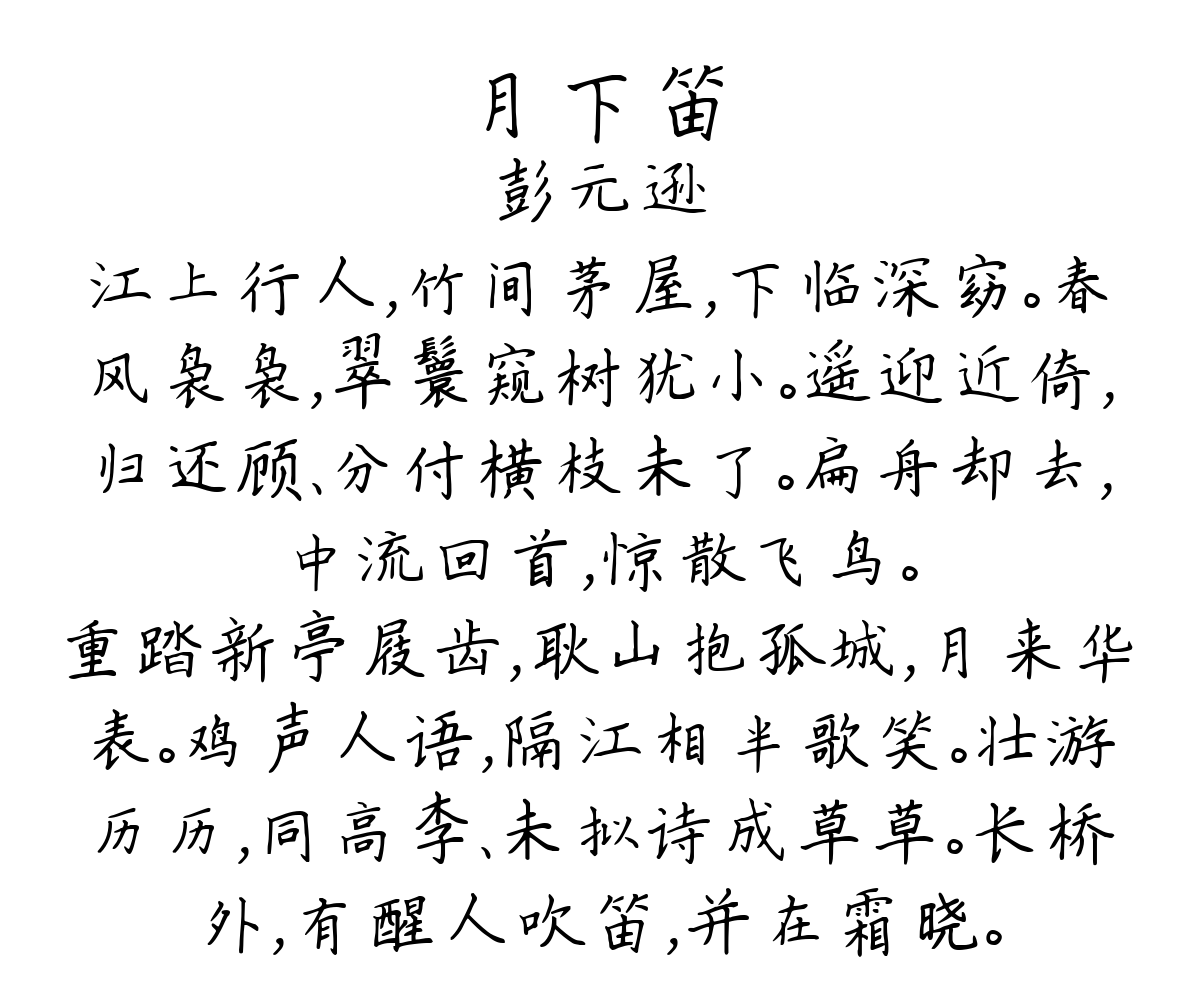 月下笛
彭元逊
江上行人,竹间茅屋,下临深窈。春
风袅袅,翠鬟窥树犹小。遥迎近倚,
归还顾、分付横枝未了。扁舟却去,
中流回首,惊散飞鸟。
重踏新亭屐齿,耿山抱孤城,月来华
表。鸡声人语,隔江相半歌笑。壮游
历历,同高李、未拟诗成草草。长桥
外,有醒人吹笛,并在霜晓。